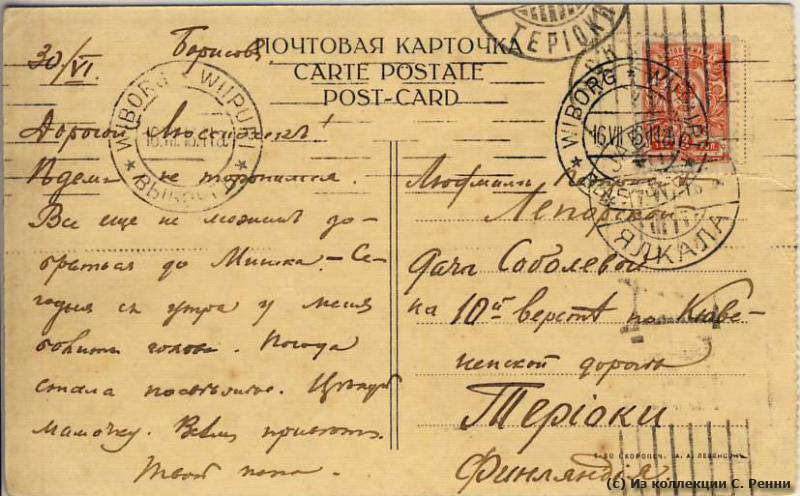 30/VI.
Борисов
ПОЧТОВАЯ КАРТОЧКА
CARTE POSTALE
POST-CARD
ТЕРІОКИ
WIBORG * WIIPURI * ВЫБОРГЪ *
WIBORG * WIIPURI
16.VII.16
ЯЛКАЛА
Дорогой
не торопимся.
Все еще не можемъ до-
браться до Минска. – Се-
годня съ утра у меня
болитъ голова. Погода
стала посвѣжее. Цѣлуй
мамочку. Всѣмъ приветъ.
Твой папа.
Людмилѣ
Лепорской
Дача Соболевой
на 10ой верстѣ по Кюве-
непской дорогѣ
Теріоки
Финляндія
СКОРОПЕЧ. А. А. ЛЕВЕНСОНЪ
(c) Из коллекции С. Ренни